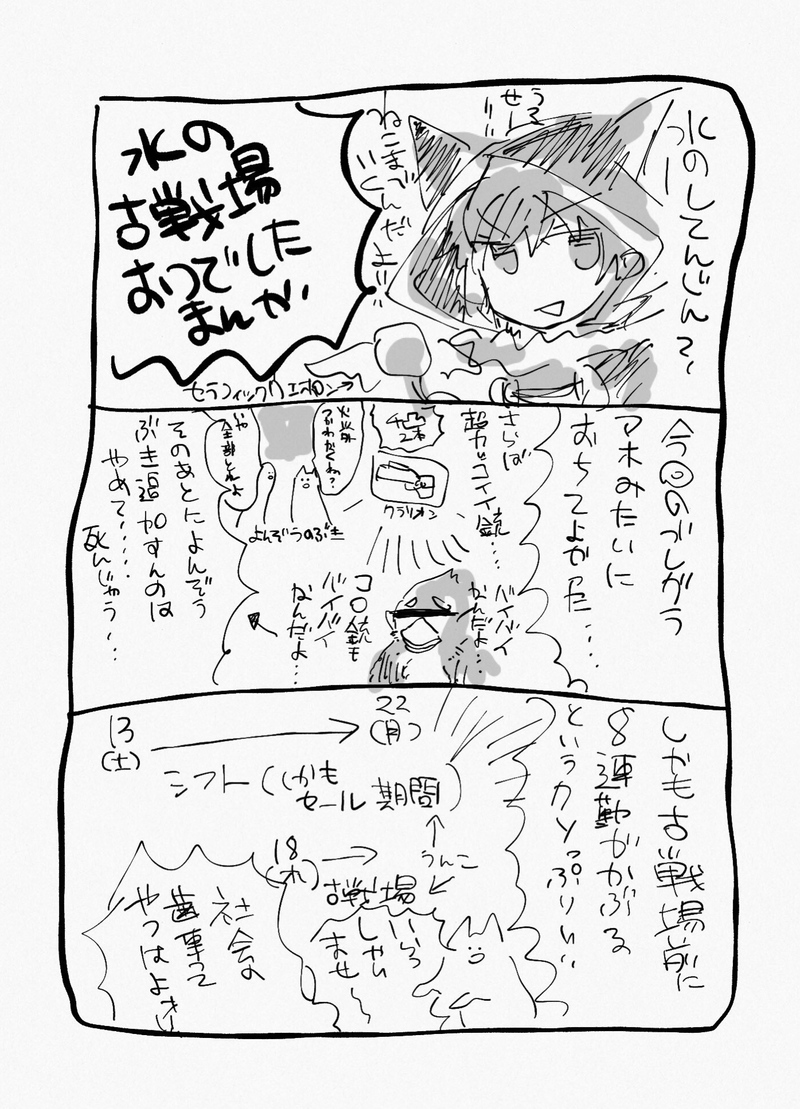 水のしてんじん?
うるせー
ねこまでいくんだよ!!
水の
古戦場
おつでした
まんが
セラフィックウェポン→
今回のぶしがう
マホみたいに
おちてよかた…
さらば
超カッコイイ銃…
クラリオン
火以外
ふわかくね?
や
全部とれよ
よんぞうのぶき
バイバイ
なんだよ…
コロ銃も
バイバイ
なんだよ…
そのあとによんぞう
ぶき追加すんのは
やめて……
死んじゃう…
しかも古戦場前に
8連勤がかぶる
というカンっぷり!!
13
(土)
22
(月)
シフト(しかも
セール期間)
18
(木)
古戦場
うんこ
いら
しゃい
ませー
社会の
歯車って
やつはよォ!!